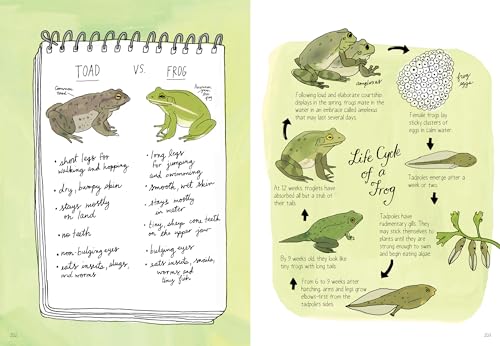 TOAD VS. FROG
Common toad
• short legs for
walking and hopping
• dry, bumpy skin
• stays mostly
on land
• no teeth
• non-bulging eyes
• eats insects, slugs,
and worms
• long legs
for jumping
and swimming
• smooth, wet skin
• stays mostly
in water
• tiny, sharp cone teeth
on the upper jaw
• bulging eyes
• eats insects, snails,
worms and
tiny fish
Life Cycle
of a
Frog
amplexus
Following loud and elaborate courtship
displays in the spring, frogs mate in the
water in an embrace called amplexus
that may last several days.
frog
eggs
Female frogs lay
sticky clusters of
eggs in calm water.
Tadpoles emerge after a
week or two.
Tadpoles have
rudimentary gills. They
may stick themselves to
plants until they are
strong enough to swim
and begin eating algae.
From 6 to 9 weeks after
hatching, arms and legs grow
elbows-first from the
tadpole's sides.
By 9 weeks old, they look like
tiny frogs with long tails.
At 12 weeks, froglets have
absorbed all but a stub of
their tails.